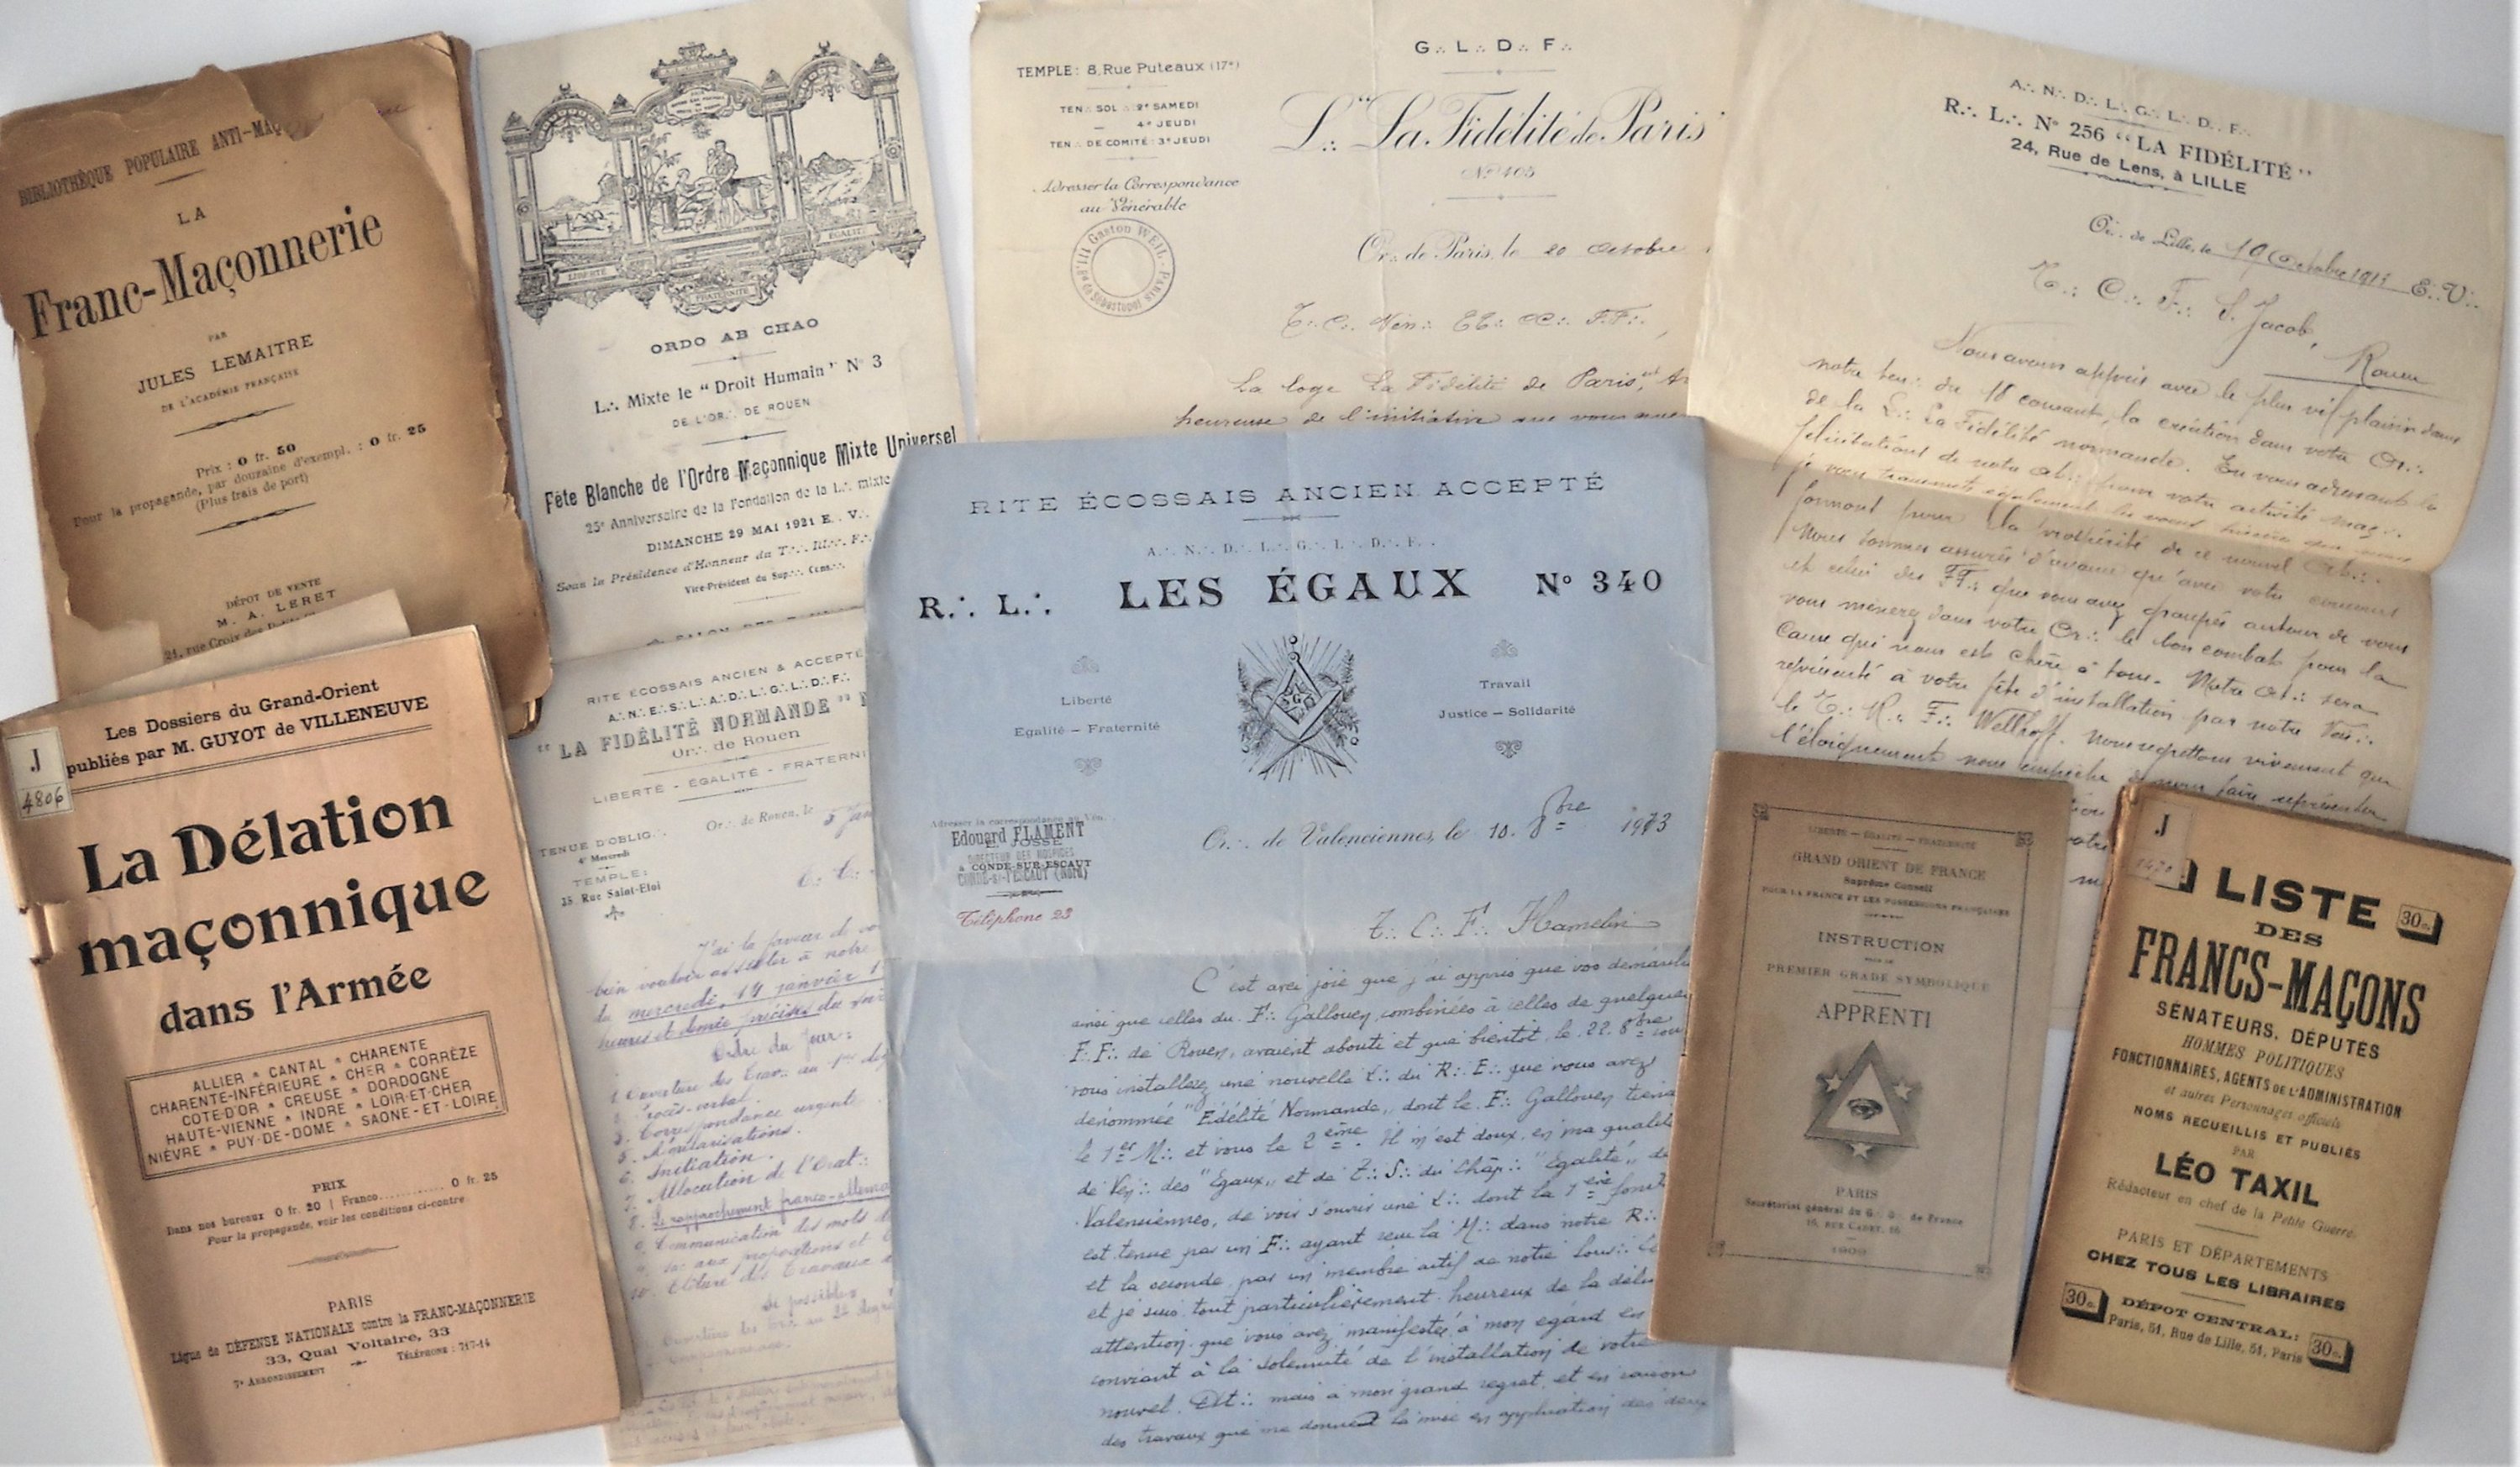 BIBLIOTHÈQUE POPULAIRE ANTI-MAÇ
LA
Franc-Maçonnerie
PAR
JULES LEMAITRE
DE L'ACADÉMIE FRANÇAISE
Prix : 0 fr. 50
Pour la propagande, par douzaine d'exempl. : 0 fr. 25
(Plus frais de port)
DÉPOT DE VENTE
M. A. LERET
21, rue Croix des
J
4806
Les Dossiers du Grand-Orient
publiés par M. GUYOT de VILLENEUVE
La Délation
maçonnique
dans l'Armée
ALLIER * CANTAL * CHARENTE
CHARENTE-INFÉRIEURE * CHER * CORRÈZE
COTE-D'OR * CREUSE * DORDOGNE
HAUTE-VIENNE * INDRE * LOIR-ET-CHER
NIÈVRE * PUY-DE-DOME * SAONE-ET-LOIRE
PRIX
Dans nos bureaux 0 fr. 20 | Franco........... 0 fr. 25
Pour la propagande, voir les conditions ci-contre.
PARIS
Ligue de DÉFENSE NATIONALE contre la FRANC-MAÇONNERIE
33, Quai Voltaire, 33
7e ARRONDISSEMENT TÉLÉPHONE : 717-14
LIBERTÉ
FRATERNITÉ
ÉGALITÉ
ORDO AB CHAO
L∴ Mixte le "Droit Humain" N° 3
DE L'OR∴ DE ROUEN
Fête Blanche de l'Ordre Maçonnique Mixte Universel
25e Anniversaire de la Fondation de la L∴ mixte
DIMANCHE 29 MAI 1921 E∴ V∴
Sous la Présidence d'Honneur du T∴ Ill∴ F∴
Vice-Président du Sup∴ Cons∴
RITE ÉCOSSAIS ANCIEN & ACCEPTÉ
A∴ N∴ E∴ S∴ L∴ A∴ D∴ L∴ G∴ L∴ D∴ F∴
"LA FIDÉLITÉ NORMANDE" N
Or∴ de Rouen
LIBERTÉ - ÉGALITÉ - FRATERNI
Or∴ de Rouen, le 5 Jan
TENUE D'OBLIG∴
4e Mercredi
TEMPLE:
25 Rue Saint-Eloi
J'ai la faveur de vo
bien vouloir assister à notre
du mercredi, 14 janvier 1
heures et demie précises du soir
Ordre du Jour:
1. Ouverture des Trav∴ au 1er deg
2. Procès-verbal.
3. Correspondance urgente
5. Initiation.
7. Allocution de l'Orat∴
8. Le rapprochement franco-allema
9. Communication des mots d
10. Clôture des Travaux
G∴ L∴ D∴ F∴
TEMPLE: 8, Rue Puteaux (17e)
TEN∴ SOL∴ 2e SAMEDI
— 4e JEUDI
TEN∴ DE COMITÉ: 3e JEUDI
Adresser la Correspondance
au Vénérable
Gaston WEILL - PARIS
Bd de Sébastopol
L∴ "La Fidélité de Paris"
N° 405
Or∴ de Paris, le 20 Octobre
T∴ C∴ Vén∴ et CC∴ FF∴,
La loge La Fidélité de Paris, est
heureuse de l'initiative que vous
A∴ N∴ D∴ L∴ G∴ L∴ D∴ F∴
R∴ L∴ N° 256 "LA FIDÉLITÉ"
24, Rue de Lens, à LILLE
Or∴ de Lille, le 19 Octobre 191 E∴ V∴
T∴ C∴ F∴ S. Jacob,
Rouen
Nous avons appris avec le plus vif plaisir dans
notre ten∴ du 18 courant, la création dans votre Or∴
de la L∴ La Fidélité normande. En vous adressant les
félicitations de notre at∴ pour votre activité maç∴
je vous transmets également les voeux sincères que nous
formons pour la prospérité de ce nouvel At∴.
Nous sommes assurés d'avance qu'avec votre concours
et celui des FF∴ que vous avez groupés autour de vous
vous mènerez dans votre Or∴ le bon combat pour la
cause qui nous est chère à tous. Notre At∴ sera
représenté à votre fête d'installation par notre Vén∴
le T∴ R∴ F∴ Wellhoff. Nous regrettons vivement que
l'éloignement nous empêche de nous faire représenter
RITE ÉCOSSAIS ANCIEN ACCEPTÉ
A∴ N∴ D∴ L∴ G∴ L∴ D∴ F∴
R∴ L∴ LES ÉGAUX N° 340
Liberté
Egalité – Fraternité
Travail
Justice – Solidarité
G
Adresser la correspondance au Vén∴
Edouard FLAMENT
JOSSE
DIRECTEUR DES HOSPICES
à CONDÉ-SUR-ESCAUT
CONDÉ-s/-l'ESCAUT (Nord)
Téléphone 23
Or∴ de Valenciennes, le 10. 8bre 1913
T∴ C∴ F∴ Hamelin
C'est avec joie que j'ai appris que vos démarches
ainsi que celles du F∴ Gallouen, combinées à celles de quelques
F.F∴ de Rouen, avaient abouti et que bientôt, le 22. 8bre cou
vous installez une nouvelle L∴ du R∴ E∴ que vous avez
dénommée "Fidélité Normande", dont le F∴ Gallouen tiend
le 1er M∴ et vous le 2ème. Il m'est doux, en ma qualité
de Vén∴ des "Egaux" et de T∴ S∴ du Chap∴ "Egalité" de
Valenciennes, de voir s'ouvrir une L∴ dont la 1ère fonct
est tenue par un F∴ ayant reçu la M∴ dans notre R∴
et la seconde par un membre actif de notre Souv∴
et je suis tout particulièrement heureux de la délic
attention que vous avez manifestée à mon égard en
conviant à la solennité de l'installation de votre
nouvel At∴ mais à mon grand regret, et en raison
des travaux que me donnent la mise en application des deux
LIBERTÉ — ÉGALITÉ — FRATERNITÉ
GRAND ORIENT DE FRANCE
Suprême Conseil
POUR LA FRANCE ET LES POSSESSIONS FRANÇAISES
INSTRUCTION
POUR LE
PREMIER GRADE SYMBOLIQUE
APPRENTI
PARIS
Secrétariat général du G∴ O∴ de France
16, RUE CADET, 16
1909
J
LISTE
30c.
DES
FRANCS-MAÇONS
SÉNATEURS, DÉPUTÉS
HOMMES POLITIQUES
FONCTIONNAIRES, AGENTS DE L'ADMINISTRATION
et autres Personnages officiels
NOMS RECUEILLIS ET PUBLIÉS
PAR
LÉO TAXIL
Rédacteur en chef de la Petite Guerre.
PARIS ET DÉPARTEMENTS
CHEZ TOUS LES LIBRAIRES
30c. DÉPOT CENTRAL: 30c.
Paris, 51, Rue de Lille, 51, Paris